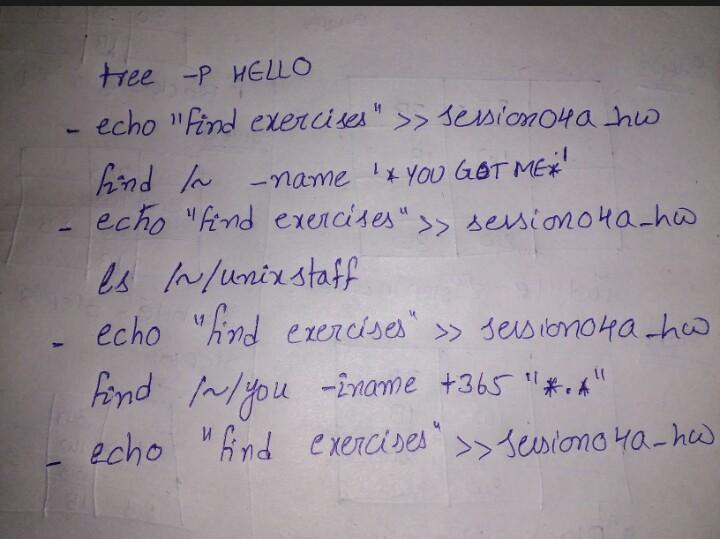 tree -P HELLO
- echo "find exercises" >> session04a_hw
find /~ -name '*YOU GOT ME*'
- echo "find exercises" >> session04a_hw
ls /~/unixstaff
- echo "find exercises" >> session04a_hw
find /~/you -iname +365 "*.*"
- echo "find exercises" >> session04a_hw